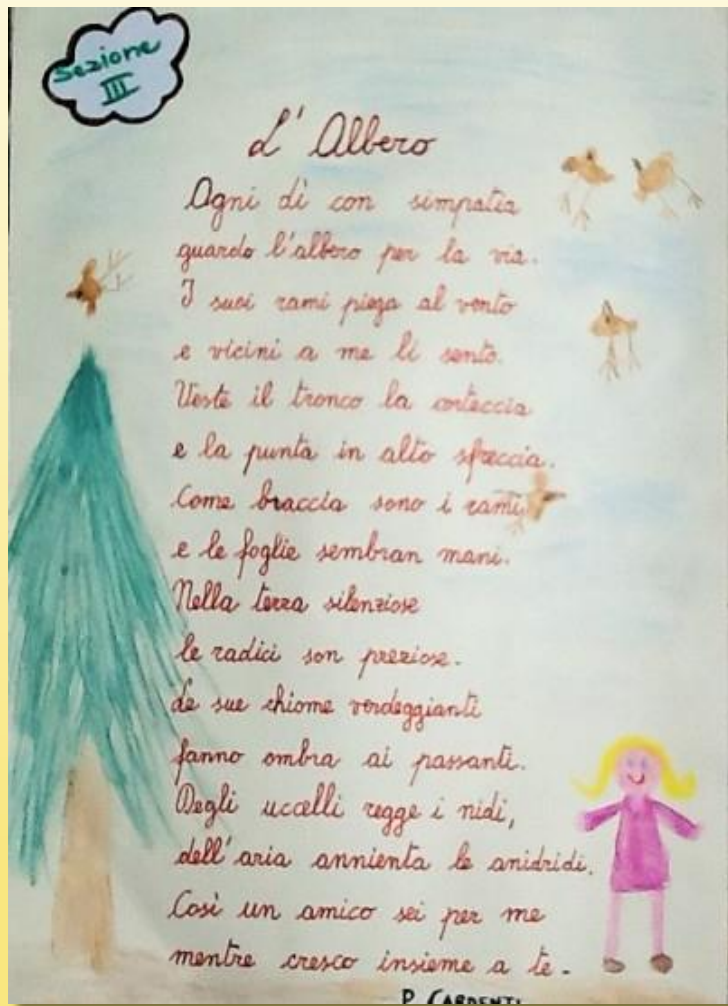 Sezione
III
L'Albero
Ogni dì con simpatia
guardo l'albero per la via.
I suoi rami piega al vento
e vicini a me li sento.
Veste il tronco la corteccia
e la punta in alto sfreccia.
Come braccia sono i rami
e le foglie sembran mani.
Nella terra silenziose
le radici son preziose.
Le sue chiome verdeggianti
fanno ombra ai passanti.
Degli uccelli regge i nidi,
dell'aria annienta le anidridi.
Così un amico sei per me
mentre cresco insieme a te.
P. CARDENTI